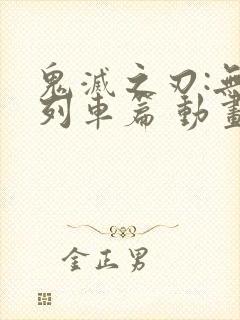 鬼滅之刃:無
列車篇 動畫
金正男